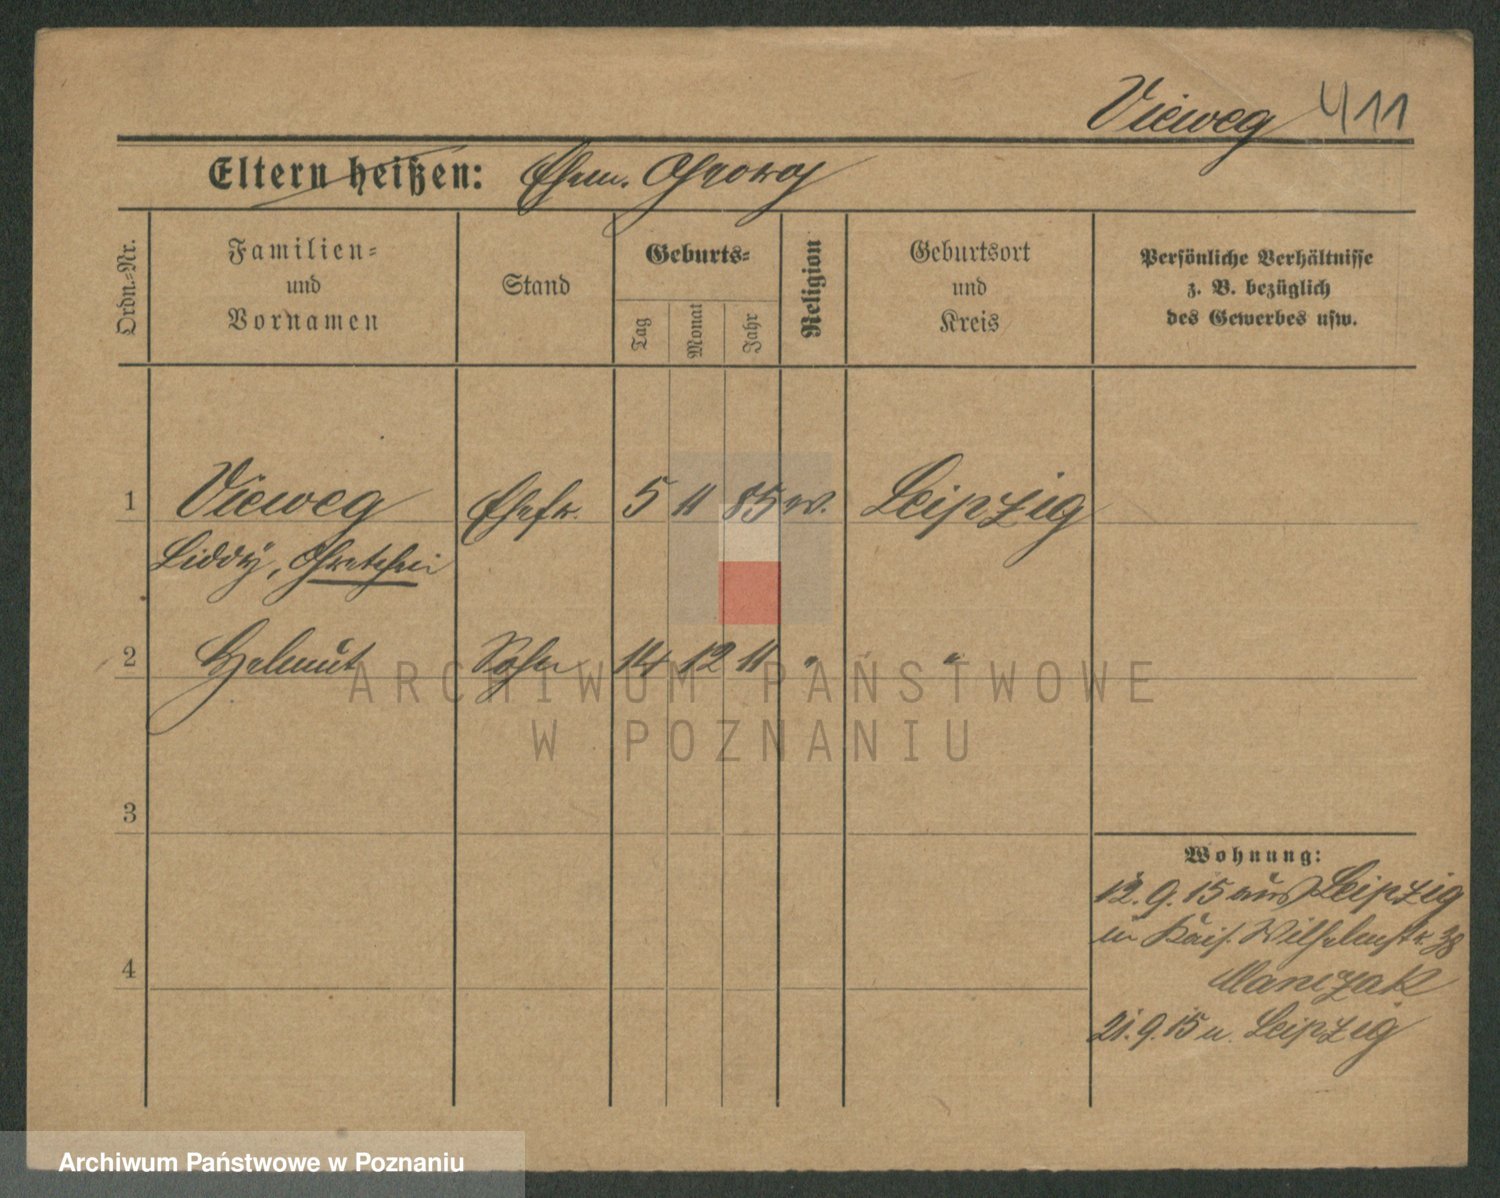 Vieweg 411
Eltern heißen: Ehem. Georg
Ordn.-Nr.
Familien-
und
Vornamen
Stand
Geburts-
Tag
Monat
Jahr
Religion
Geburtsort
und
Kreis
Persönliche Verhältnisse
z. B. bezüglich
des Gewerbes usw.
1 Vieweg Ehefr. 5 11 85 Leipzig
Liddy,
2 Helmut Sohn 14 12 11 " "
3
4
Wohnung:
12.9.15 aus Leipzig
in Kais. Wilhelmstr. 38
Manczak
21.9.15 n. Leipzig
ARCHIWUM PAŃSTWOWE
W POZNANIU
Archiwum Państwowe w Poznaniu